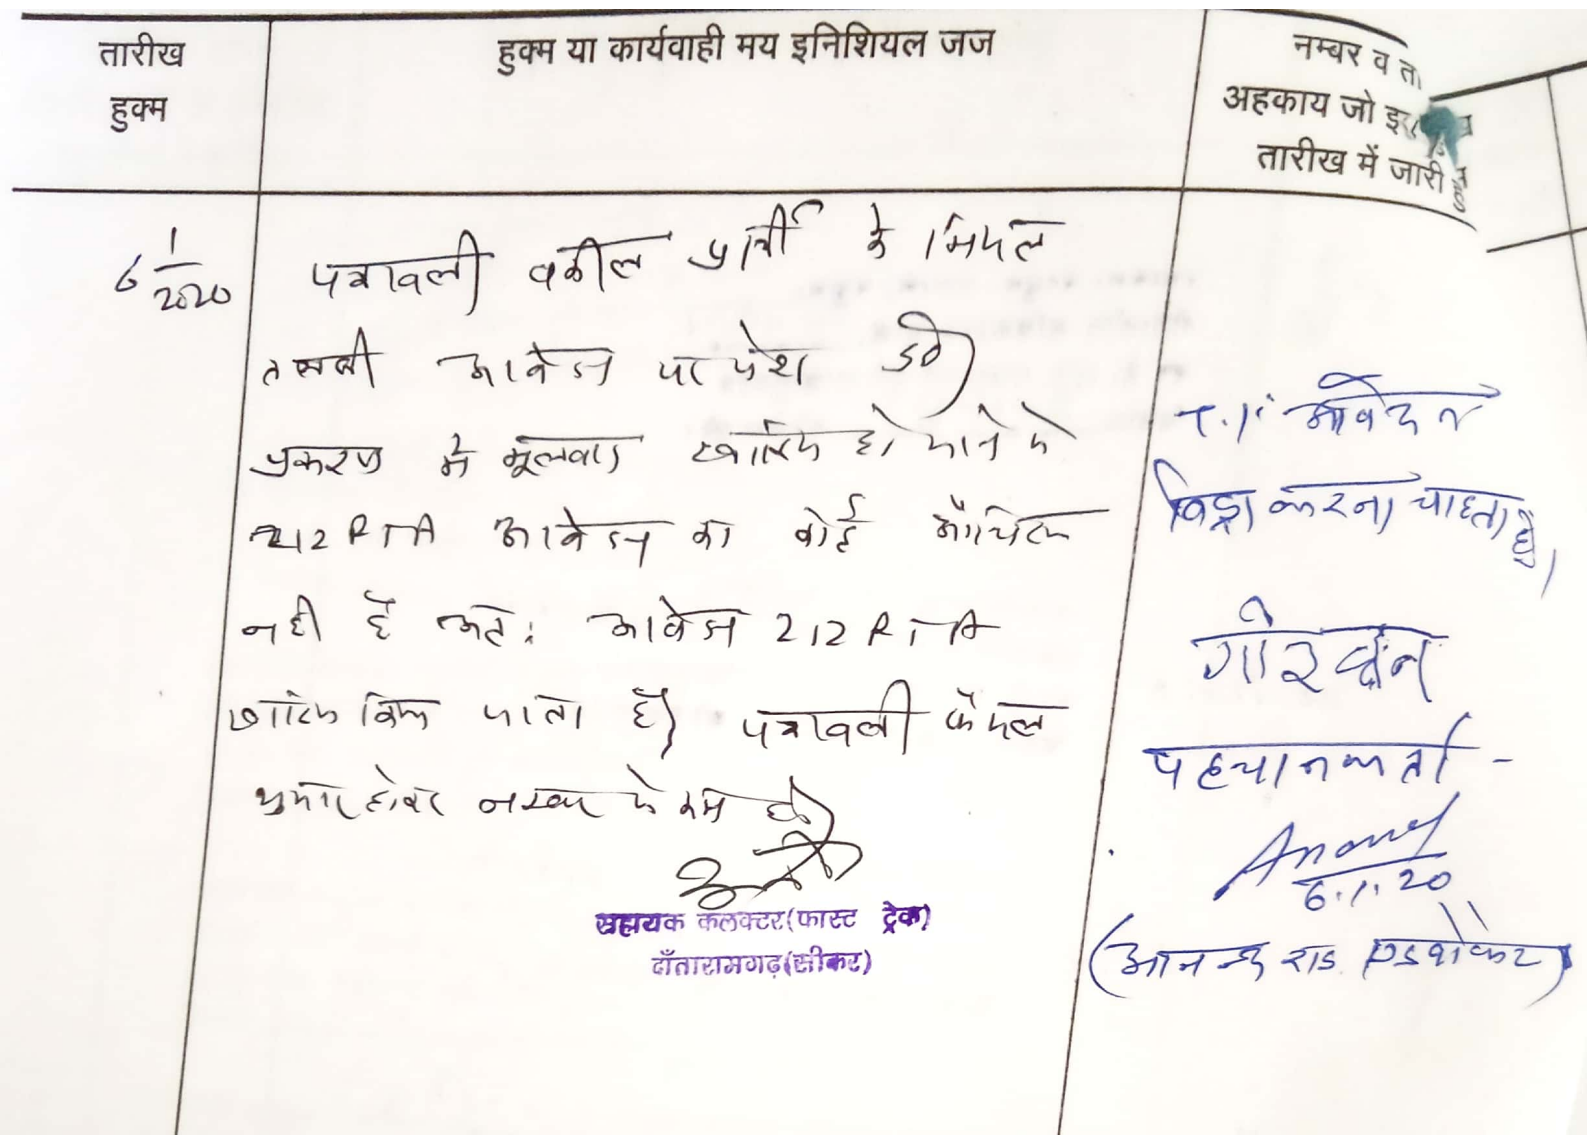 तारीख
हुक्म
हुक्म या कार्यवाही मय इनिशियल जज
नम्बर व ता
अहकाय जो इस
तारीख में जारी हुए
6/1/2020
पत्रावली वकील प्रार्थी के
तलबी आवेदन पर पेश हुई।
प्रकरण में मूलवाद खारिज हो जाने से
212 RTA आवेदन का कोई औचित्य
नहीं है अतः आवेदन 212 RTA
खारिज किया जाता है। पत्रावली फैसल
शुमार होकर नम्बर से कम हो।
सहायक कलक्टर (फास्ट ट्रेक)
दाँतारामगढ़ (सीकर)
T.I. आवेदन
विड्रा करना चाहता हूँ।
पहचानकर्ता -
Anand
6.1.20
(आनन्द एडवोकेट)